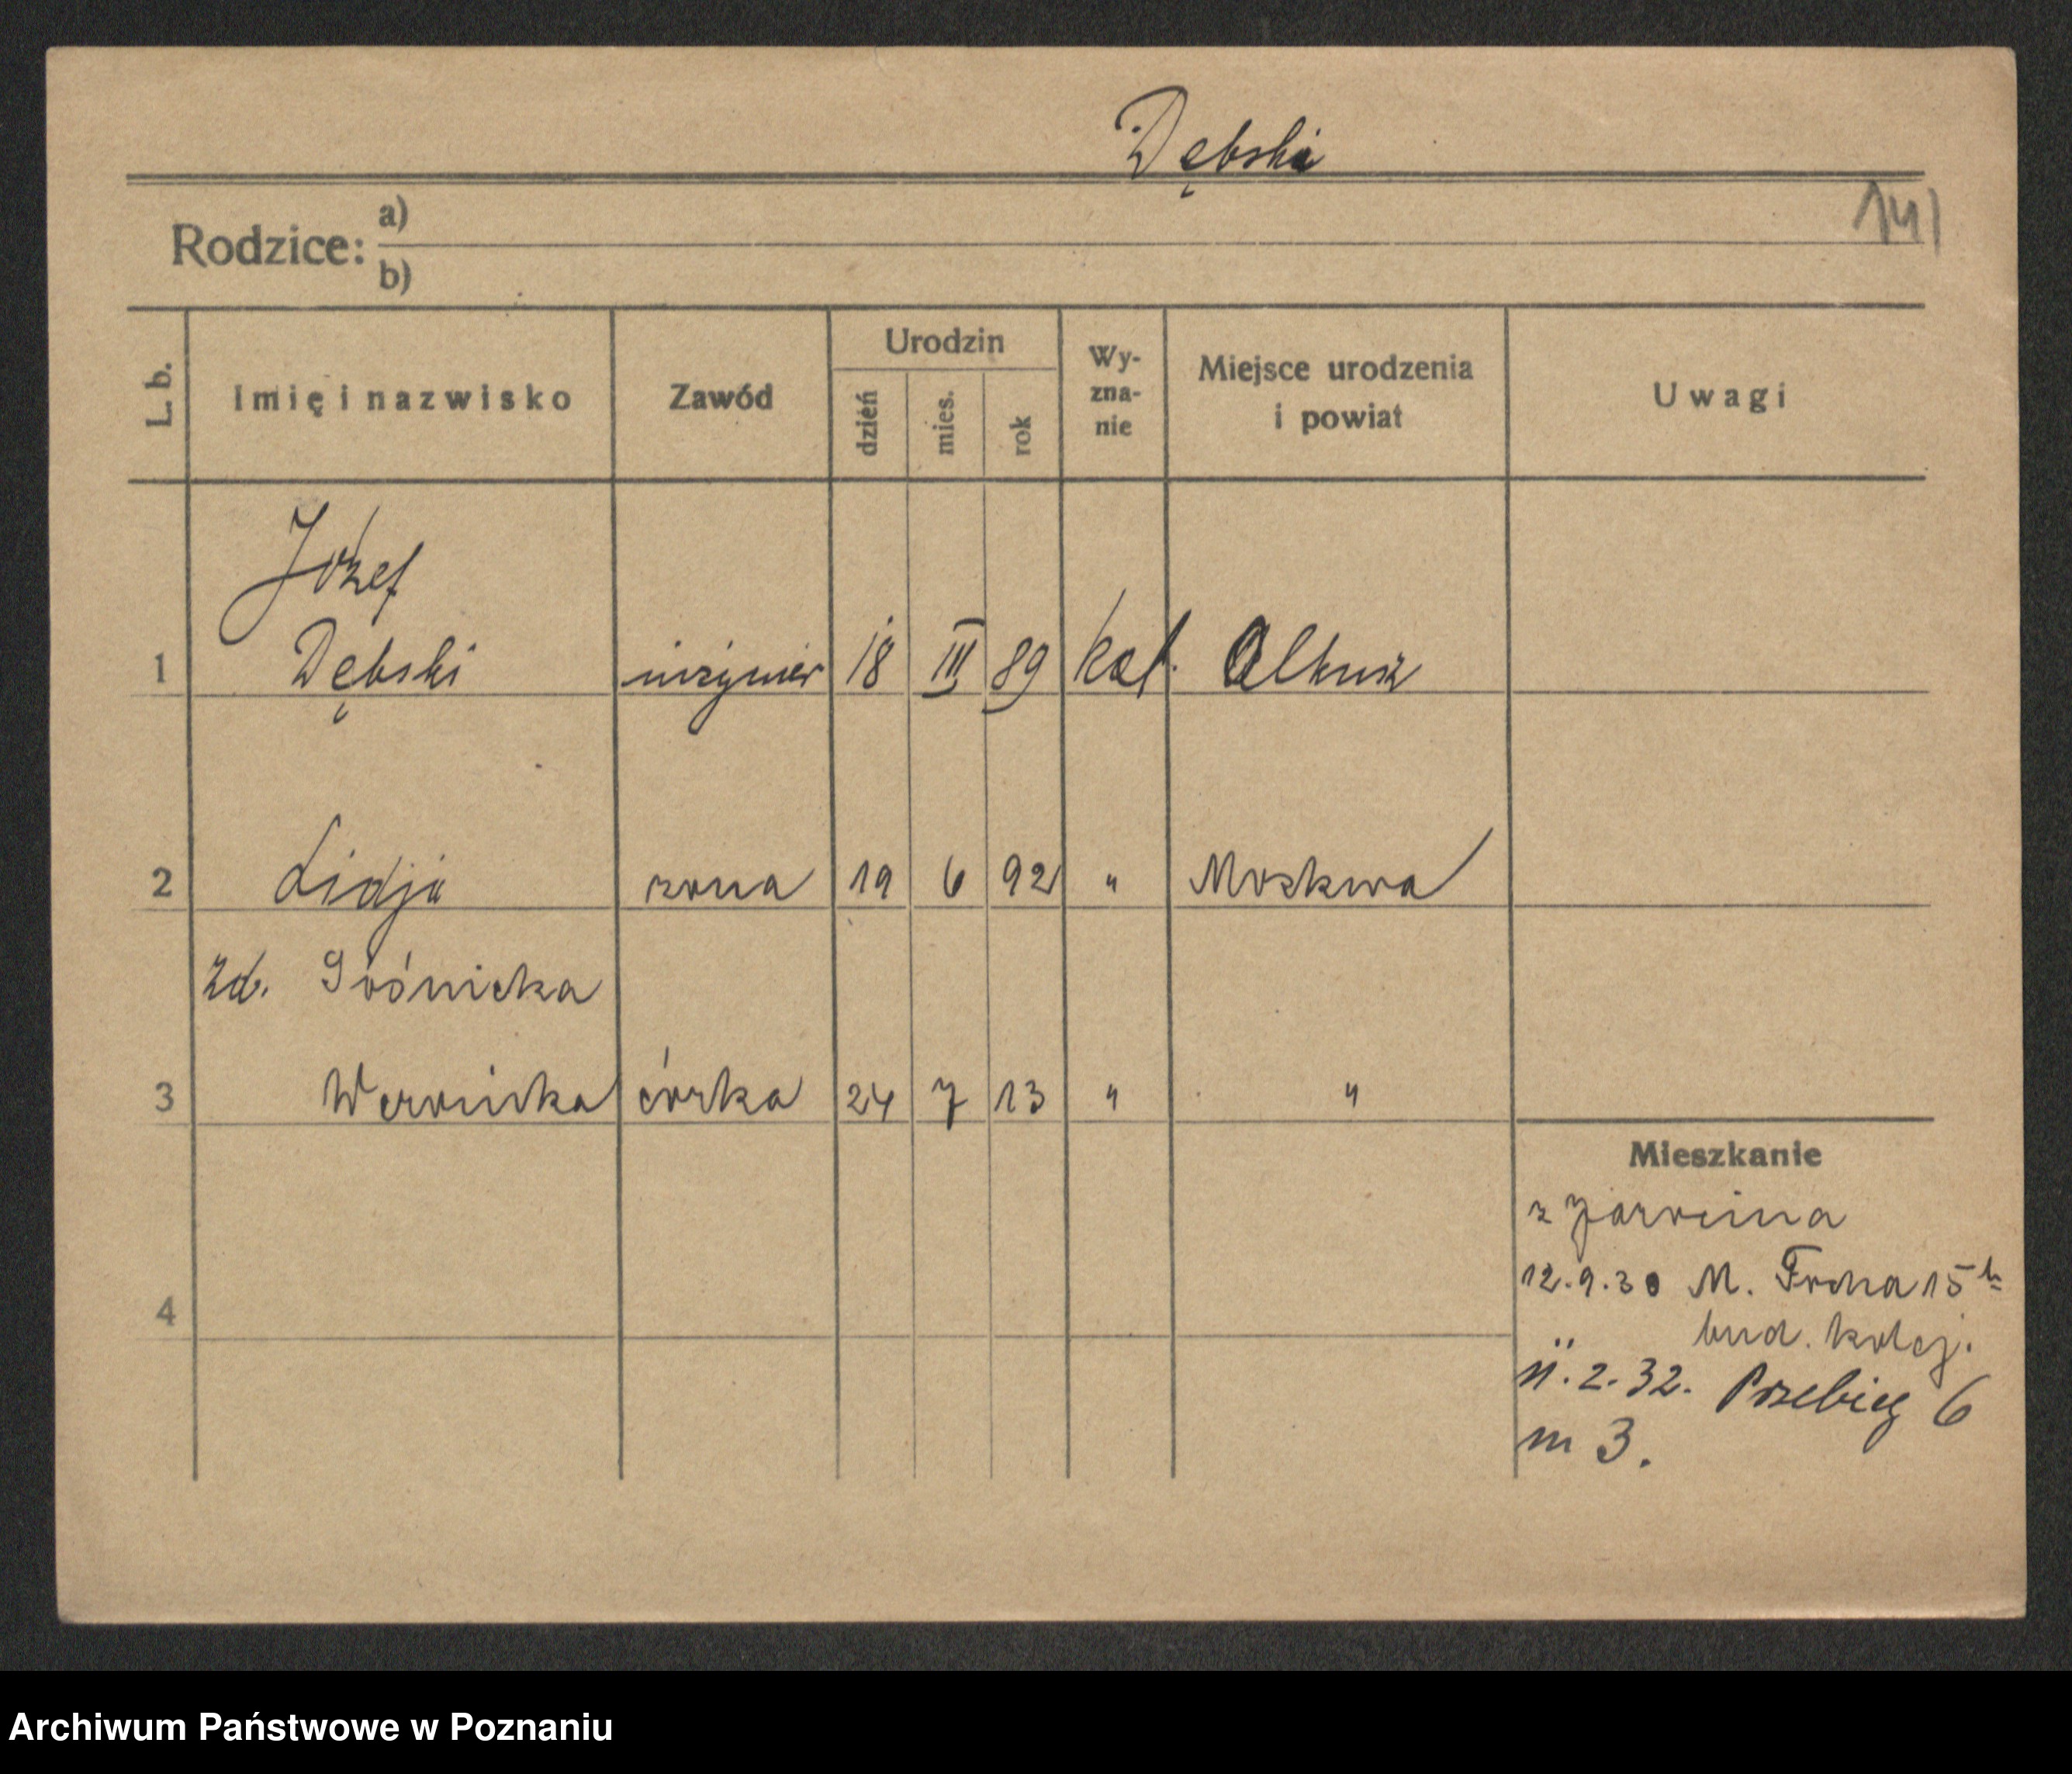 Dębski
141
Rodzice: a)
b)
L. b. Imię i nazwisko Zawód Urodzin dzień mies. rok Wy-zna-nie Miejsce urodzenia i powiat Uwagi
Józef
1 Dębski inżynier 18 III 89 kat. Olkusz
2 Lidja żona 19 6 92 " Moskwa
zd.
3 Weronika córka 24 7 13 " "
Mieszkanie
z Jarocina
12.9.30 M. Focha 15
4
bud. kolej.
11.2.32. Przebieg 6
m 3.
Archiwum Państwowe w Poznaniu